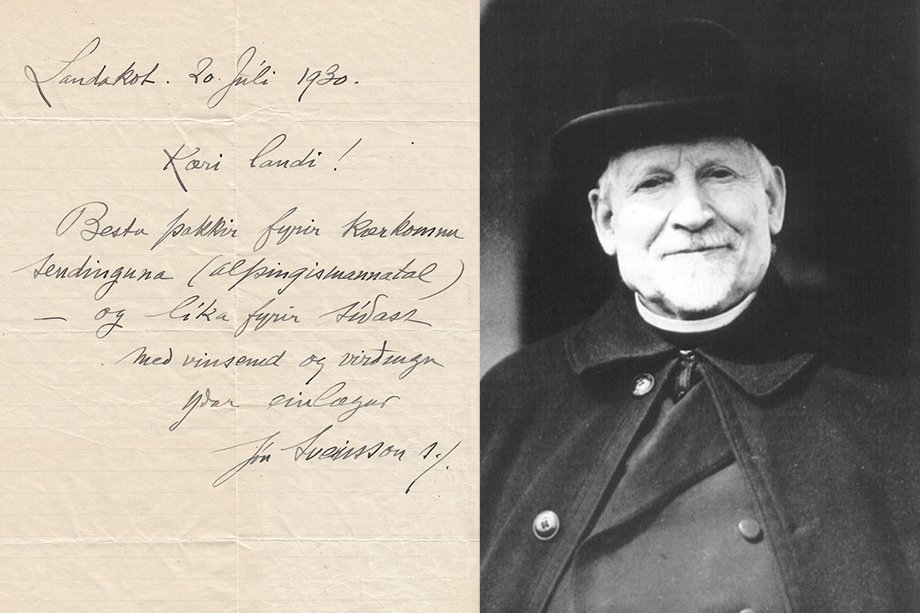 Landakot. 20. Júli 1930.
Kæri landi!
Besta þakkir fyrir kærkomnu
sendinguna (alþingismannatal)
— og líka fyrir síðast
með vinsemd og virðingu
yðar einlægur
Jón Sveinsson s.j.